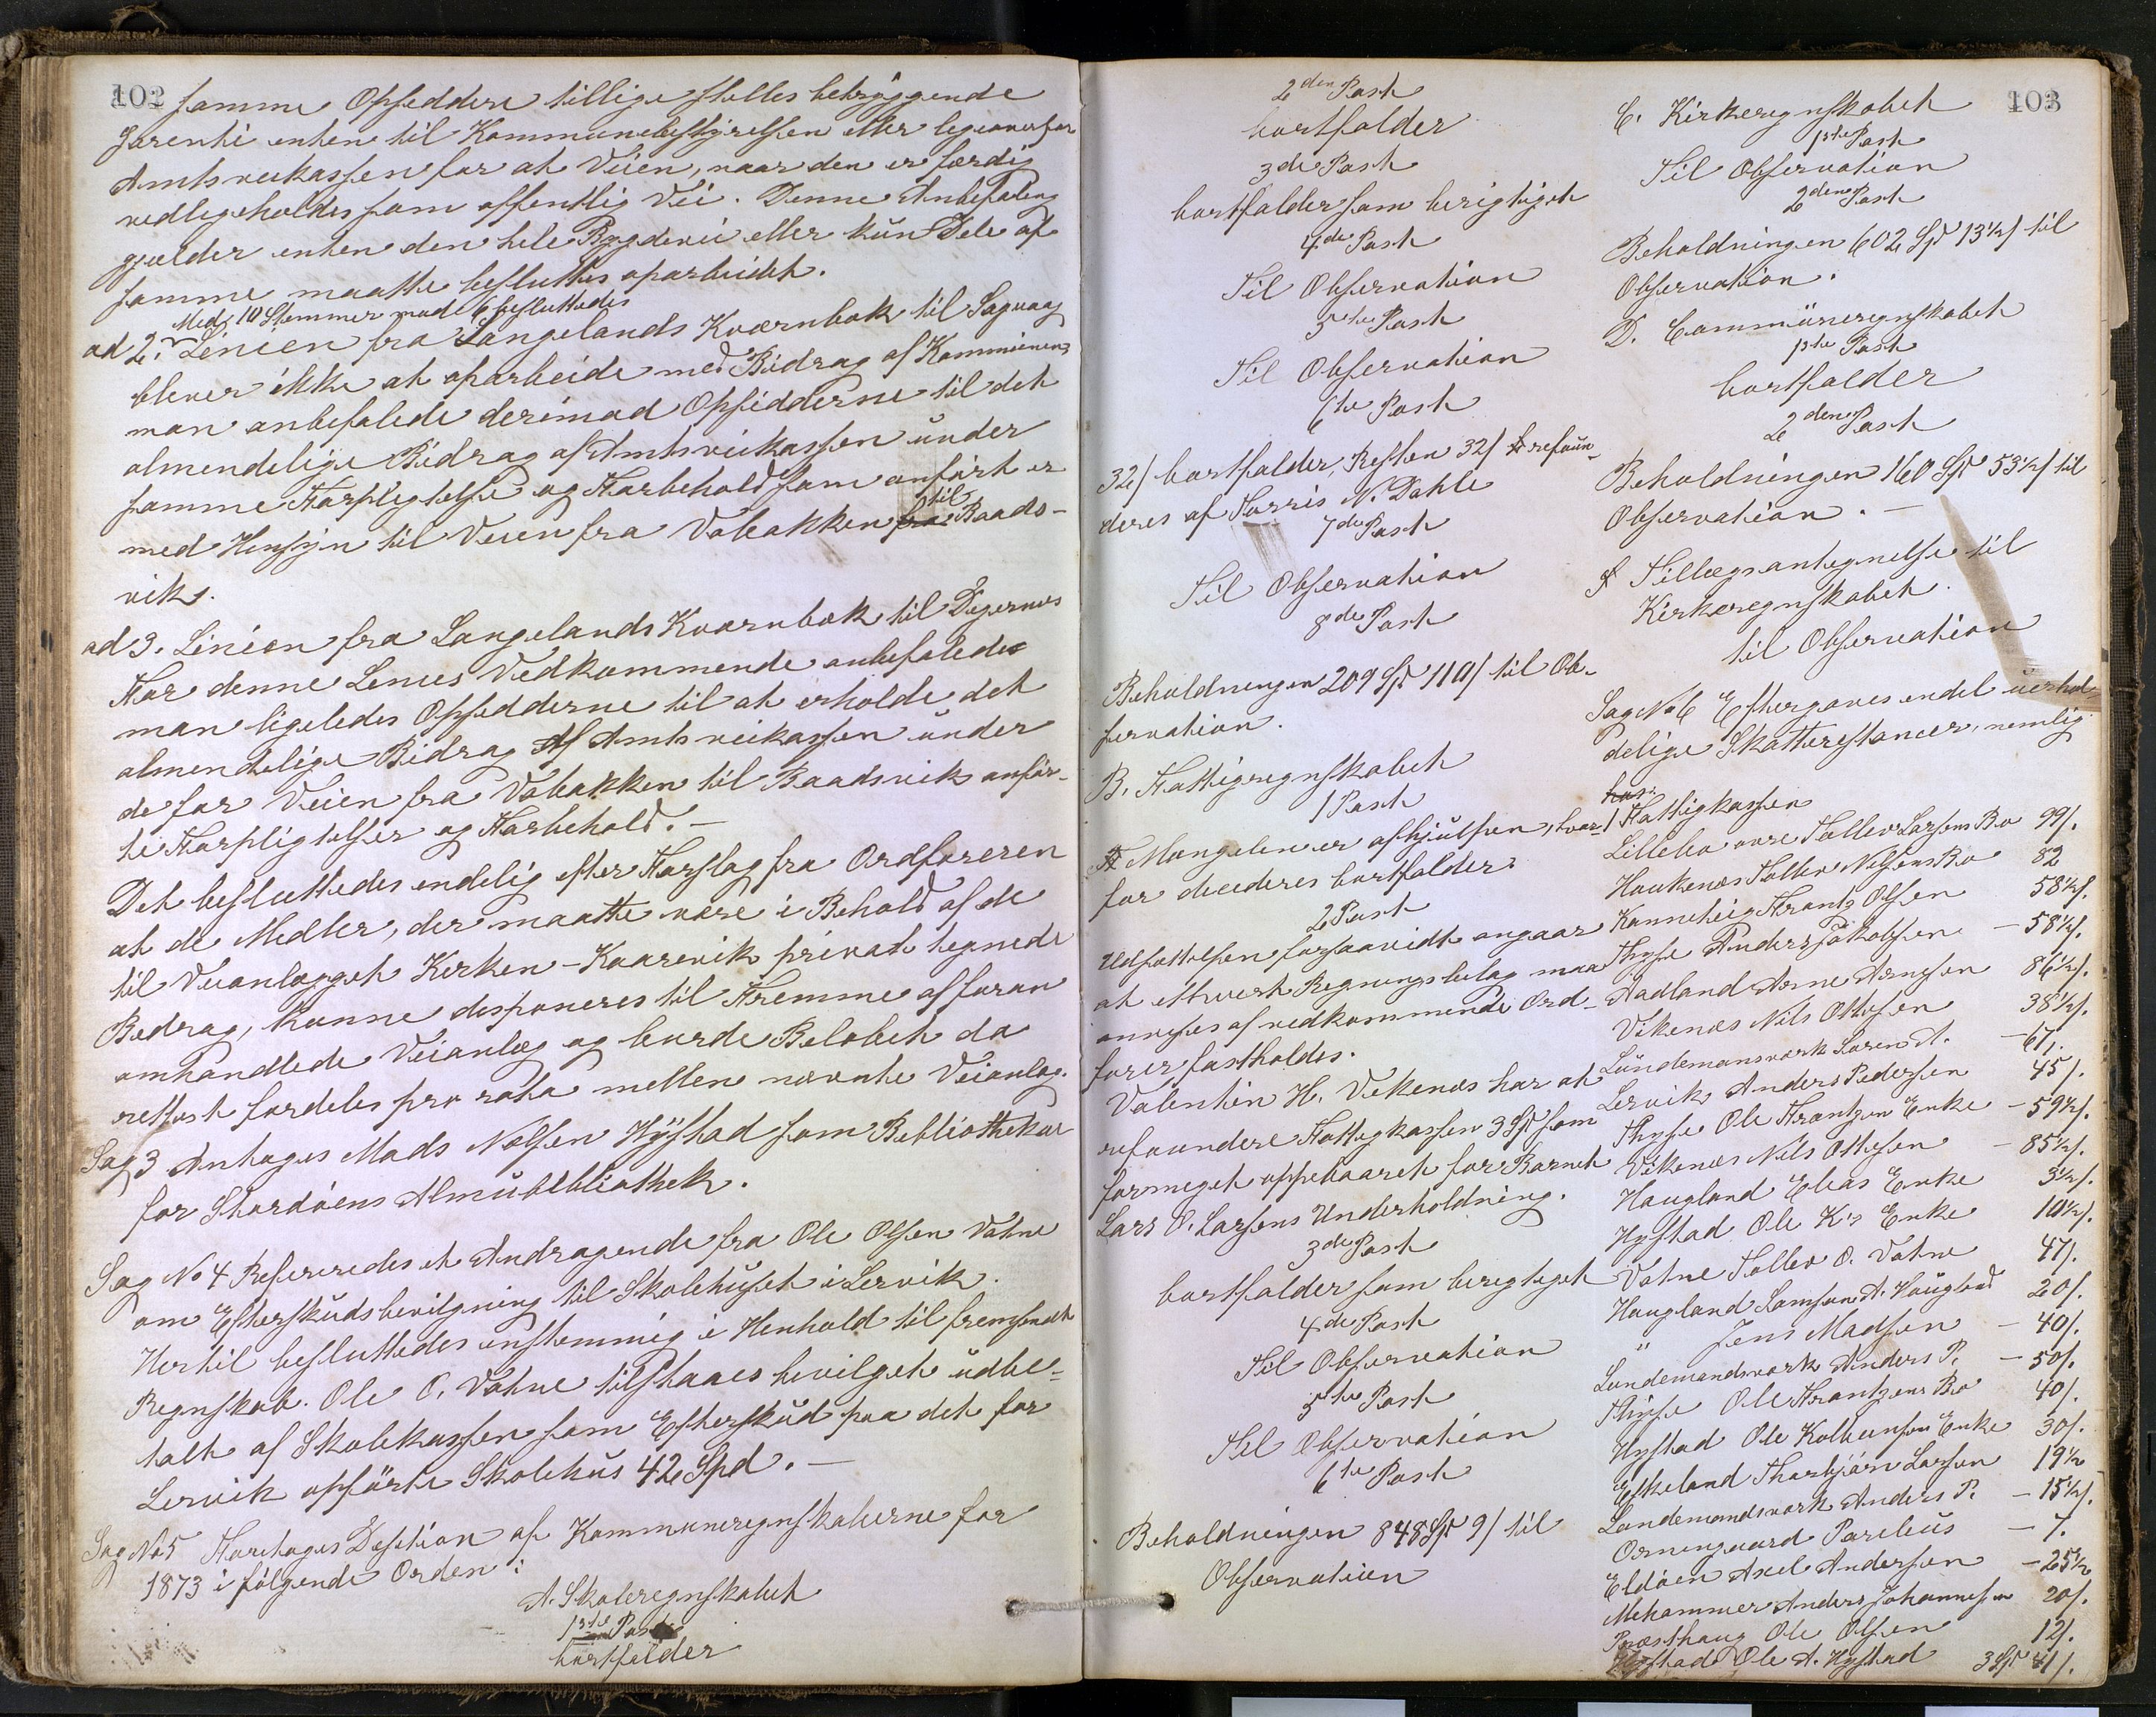 102
samme Opsiddere tillige stilles betryggende
Garenti enten til Kommunebestyrelsen eller ligeoverfor
Amtsveikassen for at Veien, naar den er færdig
vedligeholdes som offentlig Vei. Denne Anbefaling
gjælder enten den hele Bygdevei eller kun Dele af
samme maatte besluttes oparbeidet.
Med 10 Stemmer mod 6 besluttedes
ad 2. Linien fra Langelands Kværnbæk til Sagvaag
bliver ikke at oparbeide med Bidrag af Kommunen,
man anbefalede derimod Opsidderne til det
almendelige Bidrag af Amtsveikassen under
samme Forpligtelse og Forbehold som anført er
med Hensyn til Veien fra Vabakken til Baads-
vik.
ad 3. Linien fra Langelands Kværnbæk til Digernæs
For denne Linies Vedkommende anbefaledes
man ligeledes Opsidderne til at erholde det
almendelige Bidrag af Amtsveikassen under
de for Veien fra Vabakken til Baadsvik anfør-
te Forpligtelser og Forbehold. —
Det besluttedes endelig efter Forslag fra Ordføreren
at de Midler, der maatte være i Behold af de
til Veianlægget Kirken - Kaarevik privat tegnede
Bidrag, kunne disponeres til Fremme af foran
omhandlede Veianlæg og burde Beløbet da
rettest fordeles pro rata mellem nævnte Veianlæg.
Sag 3 Antoges Mads Nilsen Hystad som Bibliothekar
for Stordøens Almubibliothek.
Sag No 4 Refereredes et Andragende fra Ole Olsen Vatne
om Efterskudsbevilgning til Skolehuset i Lervik.
Hertil besluttedes enstemmig i Henhold til fremsendt
Regnskab. Ole O. Vatne tilstaaes bevilget udbe-
talt af Skolekassen som Efterskud paa det for
Lervik opførte Skolehus 42 Spd. —
Sag No 5 Foretoges Desition af Kommuneregnskaberne for
1873 i følgende Orden:
A. Skoleregnskabet
1ste Post
bortfalder
2den Post
bortfalder
3die Post
bortfalder som berigtiget
4de Post
Til Observation
5te Post
Til Observation
6te Post
32/ bortfalder, Resten 32/ refun-
deres af Torris N. Dahle
7de Post
Til Observation
8de Post
Beholdningen 209 Spd 110/ til Ob-
servation.
B. Fattigregnskabet
1 Post
Mangelen er afhjulpen, hvor-
for decideres bortfalder.
2 Post
Udsættelsen forsaavidt angaar
at ethvert Regningsbilag maa
anvises af vedkommende Ord-
fører fastholdes.
Valentin H. Vikenæs har at
refundere Fattigkassen 3 Spd som
formeget oppebaaret for Barnet
Lars O. Larsens Underholdning.
3die Post
bortfalder som berigtiget
4de Post
Til Observation
5te Post
Til Observation
6te Post
Beholdningen 848 Spd 9/ til
Observation
103
C. Kirkeregnskabet
1ste Post
Til Observation
2den Post
Beholdningen 602 Spd 13½/ til
Observation.
D. Communeregnskabet
1ste Post
bortfalder
2den Post
Beholdningen 160 Spd 53½/ til
Observation. —
Tillægsantegnelse til
Kirkeregnskabet.
til Observation
Sag No 6 Eftergaves endel uerhol-
delige Skatterestancer, nemlig
hos:
1 Fattigkassen
Lillebø øvre Tollev Larsens Bo 99/.
Haukenæs Tollev Nilsens Bo 82
Kanneheig Frantz Olsen 58½/.
Thyse Anders Jakobsen — 58½/.
Aadland Arne Arnesen 86½/.
Vikenæs Nils Ottesen 38½/.
Lündemansværk Søren A. — 61/.
Lervik Anders Pedersen 45/.
Thyse Ole Frantzen Enke — 59½/.
Vikenæs Nils Ottesen — 85½/.
Haugland Elias Enke 3½/.
Hystad Ole K's Enke 10½/.
Vatne Tollev O. Vatne 47/.
Haugland Samson A. Haugland 20/.
" Jens Madsen — 40/.
Lundemandsværk Anders P. — 50/.
Thyse Ole Frantzens Bo 40/.
Hystad Ole Kolbensen Enke 30/.
Eskeland Thorbjørn Larsen 19½
Lundemandsværk Anders P. — 15½/.
Orningaard Parelius — 7.
Eldøen Axel Andersen — 25½
Mehammer Anders Johannesen 20/.
Præsthaug Ole Olsen 12/.
Hystad Ole A. Hystad 3 Spd 41/.